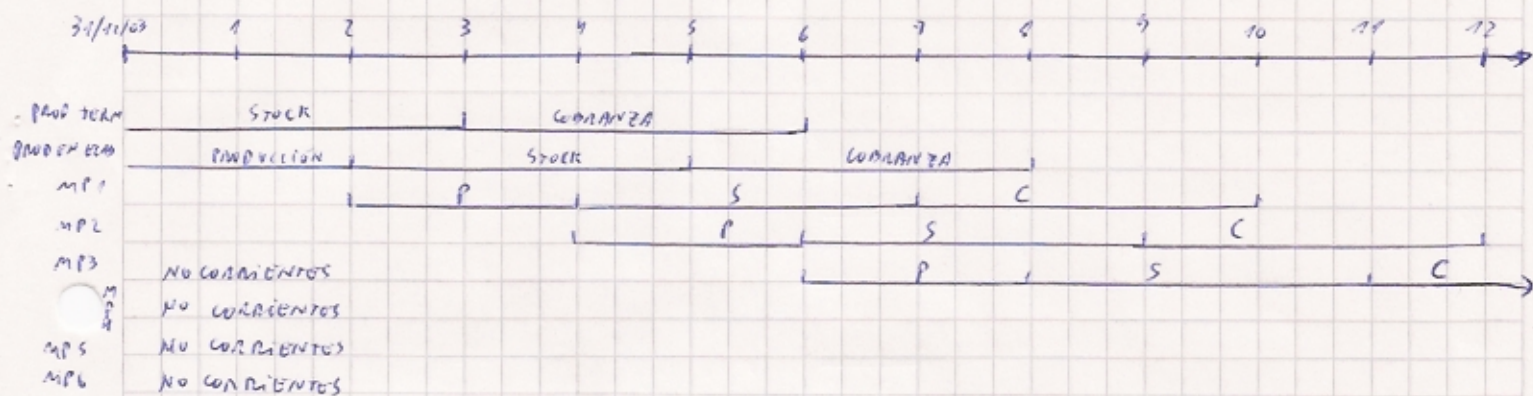 31/12/03 1 2 3 4 5 6 7 8 9 10 11 12
PROD TERM STOCK COBRANZA
PROD EN ELAB PRODUCCIÓN STOCK COBRANZA
MP1 P S C
MP2 P S C
MP3 NO CORRIENTES P S C
MP4 NO CORRIENTES
MP5 NO CORRIENTES
MP6 NO CORRIENTES